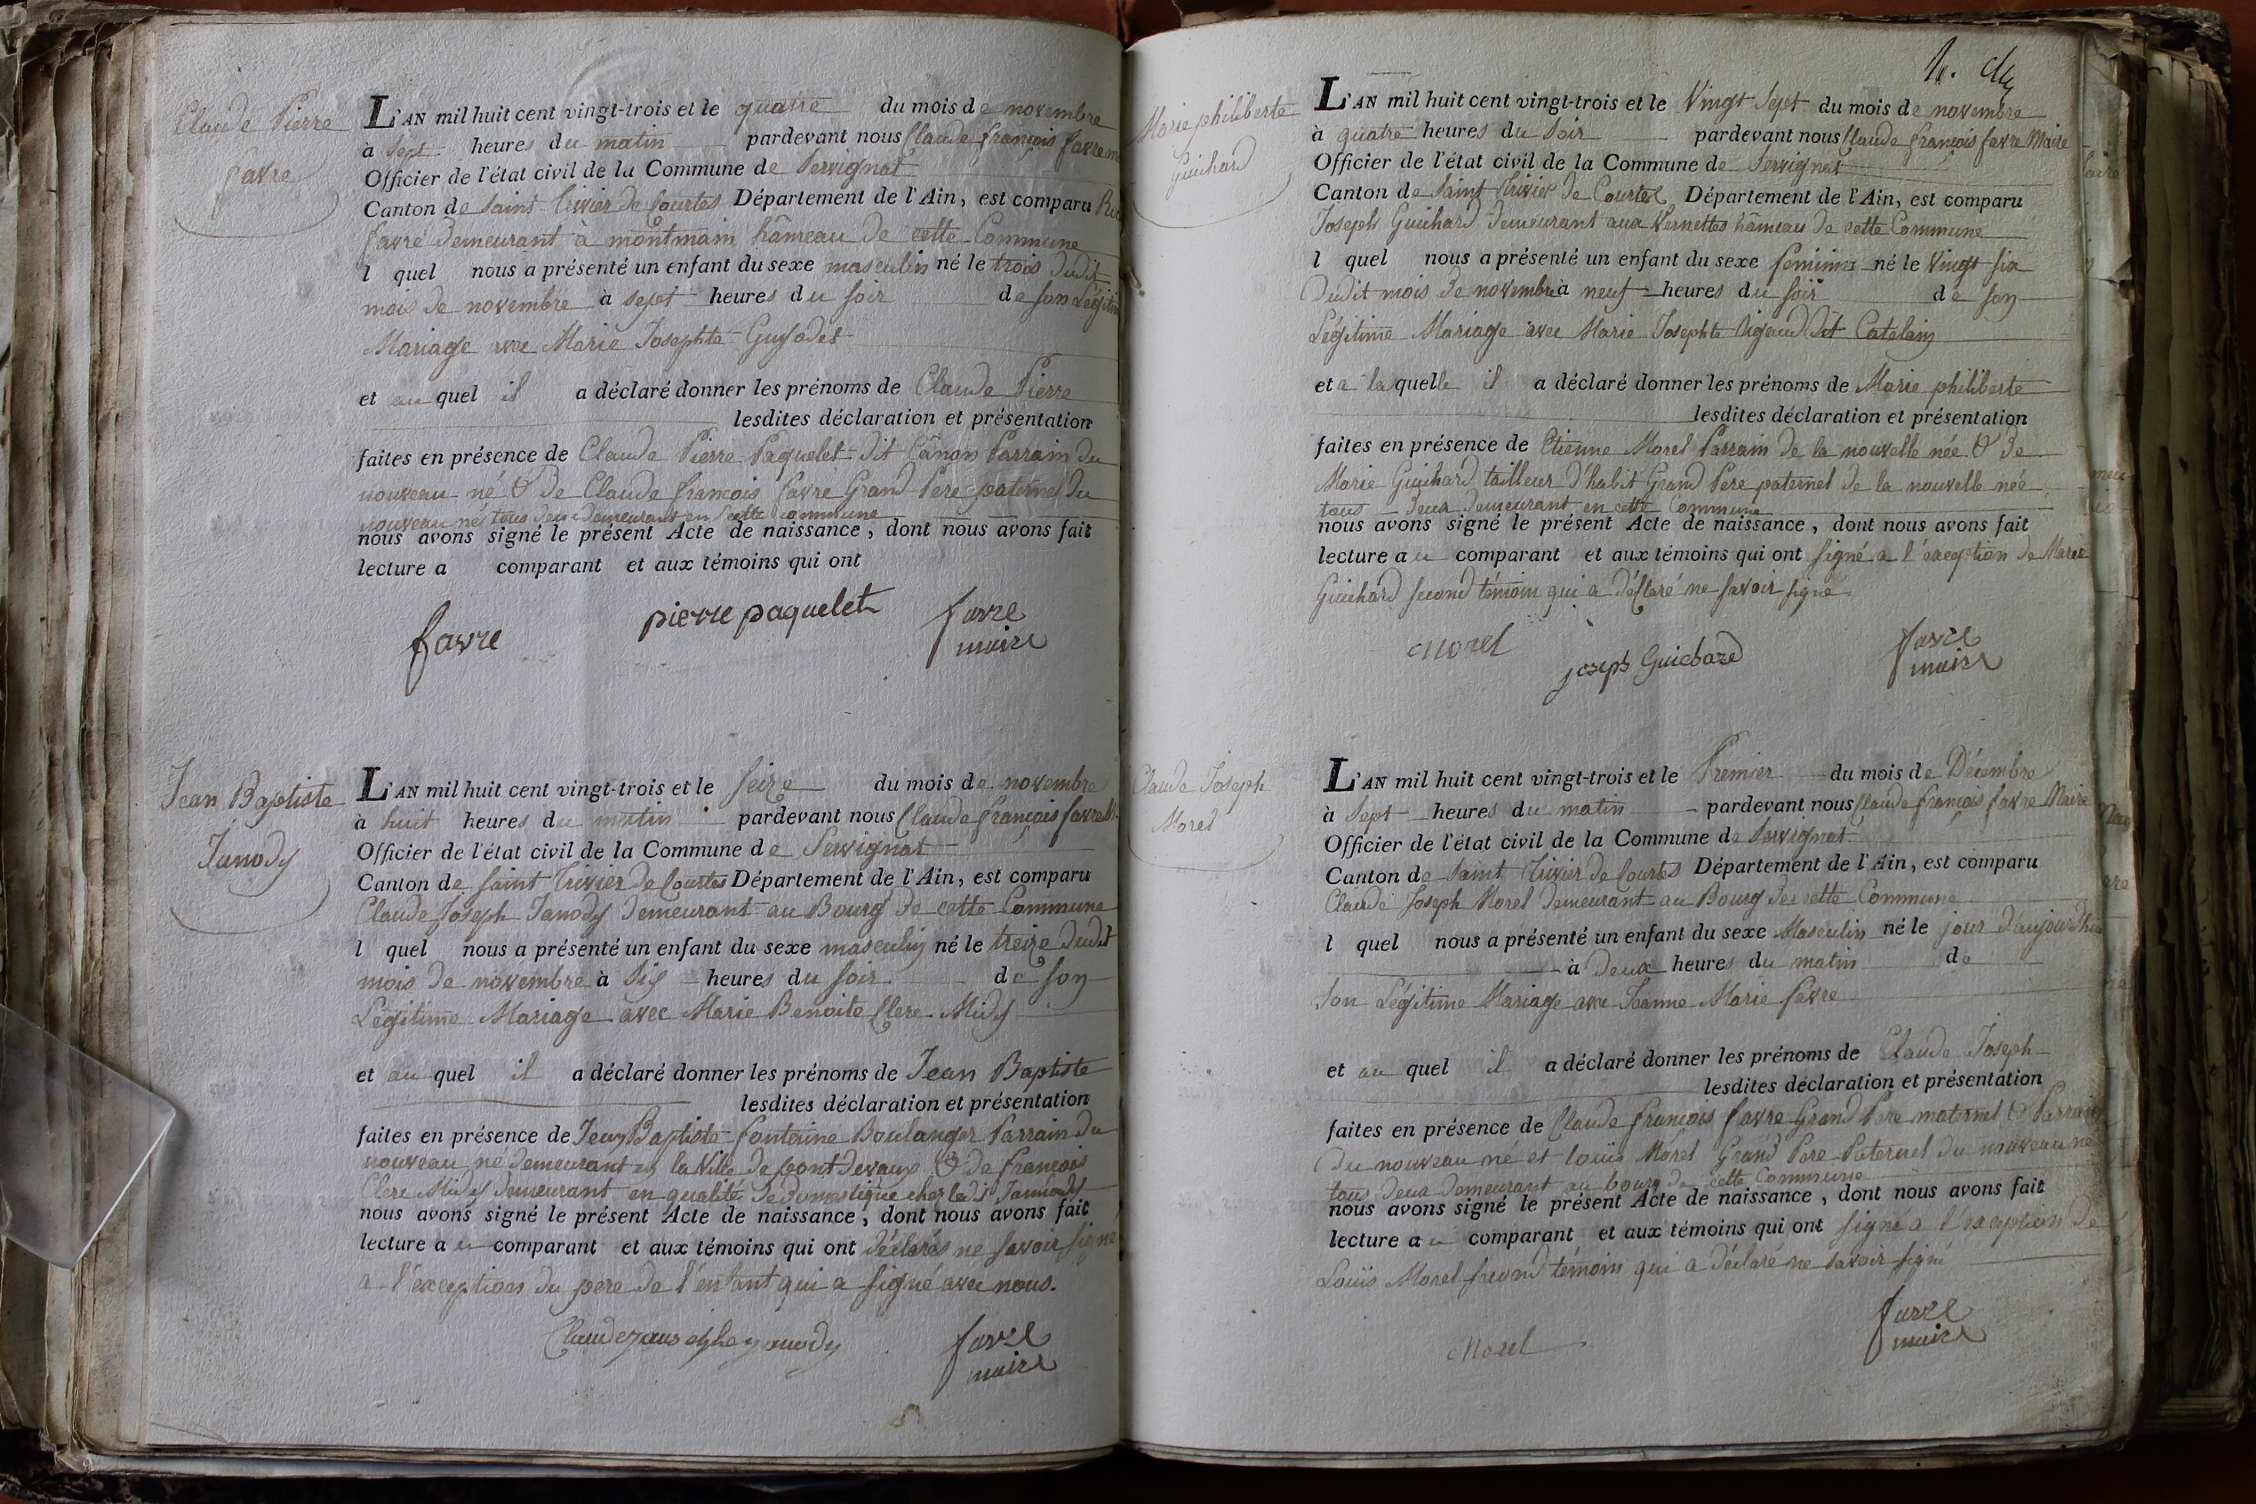 Claude Pierre
favre
L'AN mil huit cent vingt-trois et le quatre du mois de novembre
à sept heures du matin pardevant nous Claude françois favre
Officier de l'état civil de la Commune de Servignat
Canton de Saint Trivier de Courtes Département de l'Ain, est comparu
favre demeurant à montmain hâmeau de cette Commune
l quel nous a présenté un enfant du sexe masculin né le trois dudit
mois de novembre à sept heures du soir de son Légitime
Mariage avec Marie Josephte Guyodet
et au quel il a déclaré donner les prénoms de Claude Pierre
lesdites déclaration et présentation
faites en présence de Claude Pierre Paquelet dit Cânon Parrain du
nouveau né & de Claude françois favre Grand Pere paternel du
nouveau né tous deux demeurant en cette commune
nous avons signé le présent Acte de naissance, dont nous avons fait
lecture a comparant et aux témoins qui ont
favre pierre paquelet favre
maire
Jean Baptiste
Janody
L'AN mil huit cent vingt-trois et le seize du mois de novembre
à huit heures du matin pardevant nous Claude françois favre M.
Officier de l'état civil de la Commune de Servignat
Canton de Saint Trivier de Courtes Département de l'Ain, est comparu
Claude Joseph Janody demeurant au Bourg de cette Commune
l quel nous a présenté un enfant du sexe masculin né le treize dudit
mois de novembre à dix heures du soir de son
Légitime Mariage avec Marie Benoite Clere Midy
et au quel il a déclaré donner les prénoms de Jean Baptiste
lesdites déclaration et présentation
faites en présence de Jean Baptiste fonterine Boulanger Parrain du
nouveau né demeurant en la Ville de pont devaux & de françois
Clere Midy demeurant en qualité de domestique chez ledit Janody
nous avons signé le présent Acte de naissance, dont nous avons fait
lecture au comparant et aux témoins qui ont déclarés ne savoir signé
a l'exception du pere de l'enfant qui a signé avec nous.
favre
maire
Marie philiberte
Guichard
L'AN mil huit cent vingt-trois et le Vingt sept du mois de novembre
à quatre heures du soir pardevant nous Claude françois favre Maire
Officier de l'état civil de la Commune de Servignat
Canton de Saint Trivier de Courtes Département de l'Ain, est comparu
Joseph Guichard demeurant aux Vernettes hâmeau de cette Commune
l quel nous a présenté un enfant du sexe feminin né le Vingt six
Dudit mois de novembre a neuf heures du soir de son
Légitime Mariage avec Marie Josephte Rigaud dit Catelain
et a la quelle il a déclaré donner les prénoms de Marie philiberte
lesdites déclaration et présentation
faites en présence de Etienne Morel Parrain de la nouvelle née & de
Marie Guichard tailleur d'habit Grand Pere paternel de la nouvelle née
tous deux demeurant en cette Commune
nous avons signé le présent Acte de naissance, dont nous avons fait
lecture au comparant et aux témoins qui ont signé a l'exception de Marie
Guichard second témoin qui a déclaré ne savoir signé
Morel joseph Guichard favre
maire
Claude Joseph
Morel
L'AN mil huit cent vingt-trois et le Premier du mois de Décembre
à sept heures du matin pardevant nous Claude françois favre Maire
Officier de l'état civil de la Commune de Servignat
Canton de Saint Trivier de Courtes Département de l'Ain, est comparu
Claude Joseph Morel demeurant au Bourg de cette Commune
l quel nous a présenté un enfant du sexe Masculin né le jour d'aujourdhui
à deux heures du matin de
son Légitime Mariage avec Jeanne Marie favre
et au quel il a déclaré donner les prénoms de Claude Joseph
lesdites déclaration et présentation
faites en présence de Claude françois favre Grand Pere maternel & Parrain
du nouveau né et louis Morel Grand Pere Paternel du nouveau né
tous deux demeurant au bourg de cette Commune
nous avons signé le présent Acte de naissance, dont nous avons fait
lecture au comparant et aux témoins qui ont signé a l'exception de
Louis Morel second témoin qui a déclaré ne savoir signé
Morel favre
maire